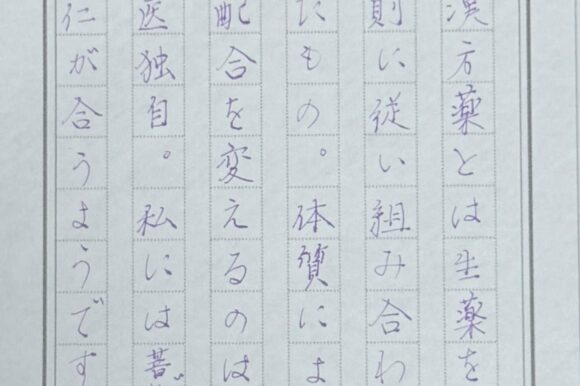 漢方薬とは生薬を
則に従い組み合わ
たもの。体質によ
配合を変えるのは
医独自。私には薏
仁が合うようです